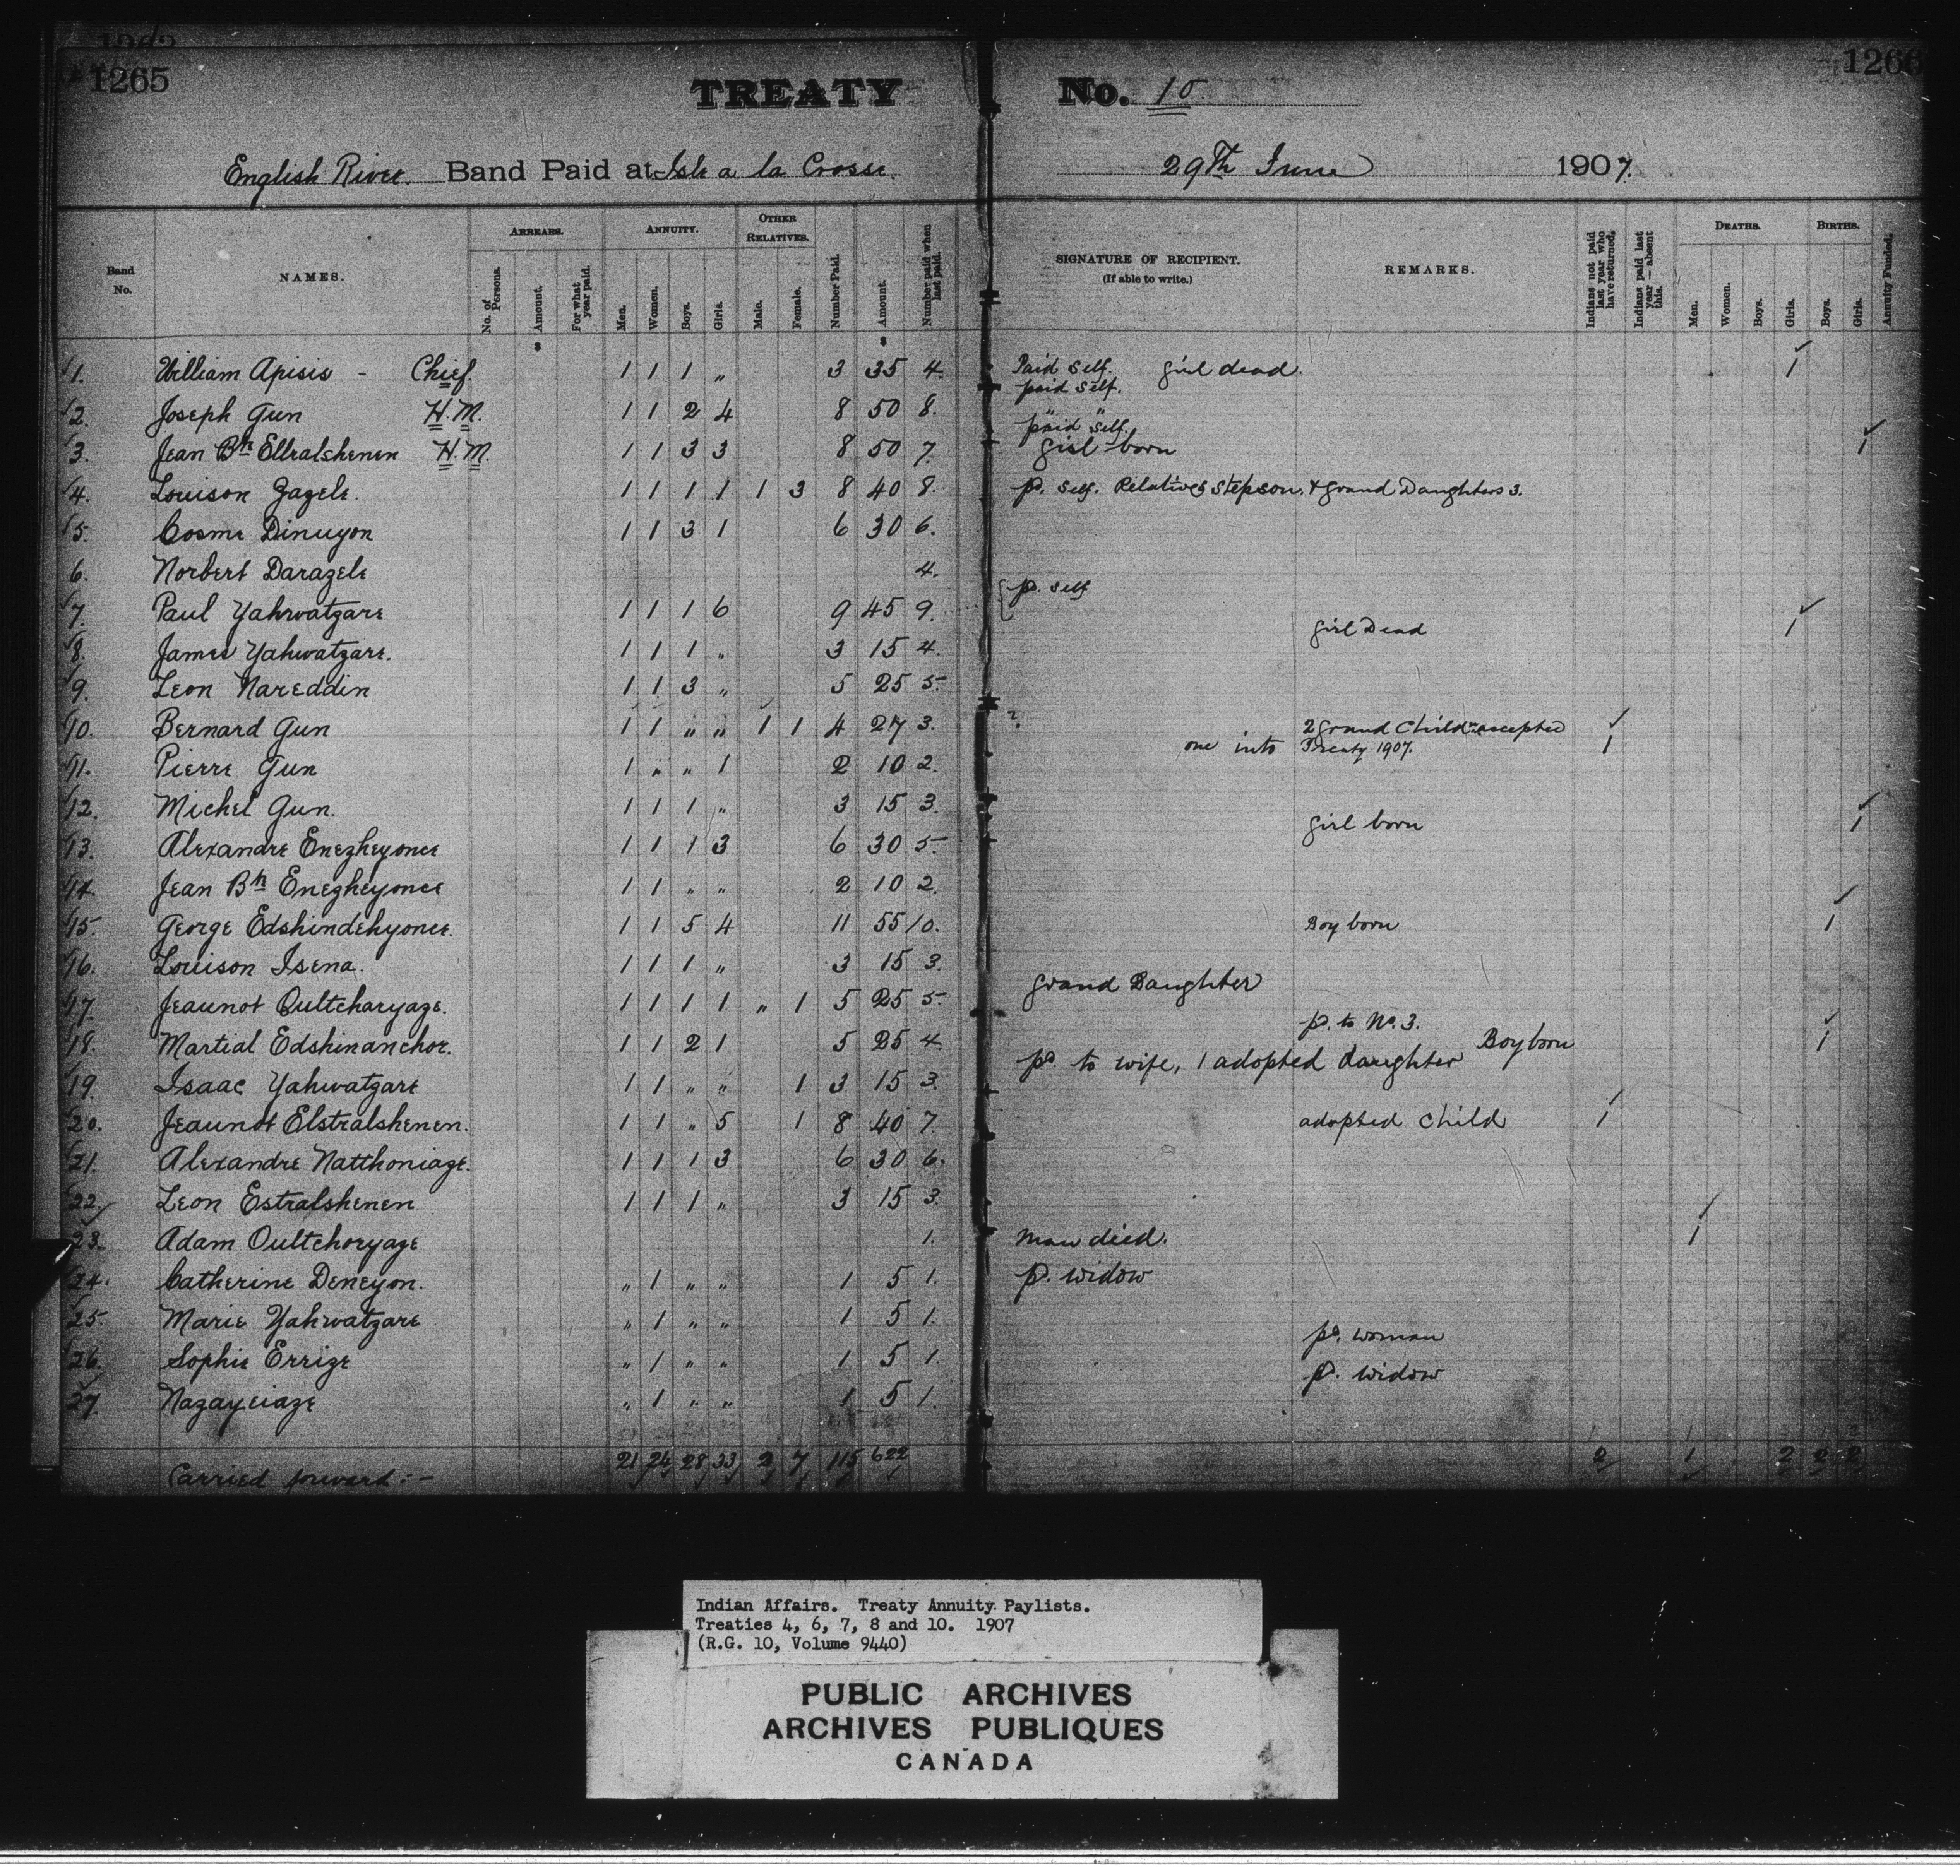 1265
TREATY No. 10
1266
English River Band Paid at Isle a la Crosse. 29th June 1907.
Band No. NAMES. ARREARS. No. of Persons. Amount. For what year paid. ANNUITY. Men. Women. Boys. Girls. OTHER RELATIVES. Male. Female. Number Paid. Amount. Number paid when last paid. SIGNATURE OF RECIPIENT. (If able to write.) REMARKS. Indians not paid last year who have returned. Indians paid last year — absent this. DEATHS. Men. Women. Boys. Girls. BIRTHS. Boys. Girls. Annuity Funded.
$ $
1. William Apisis - Chief. 1 1 1 " 3 35 4. Paid Self. girl dead. 1
paid self.
2. Joseph Gun H.M. 1 1 2 4 8 50 8. " "
paid self.
3. Jean Bte Ellralshenen H.M. 1 1 3 3 8 50 7. girl born 1
4. Louison Zazele. 1 1 1 1 1 3 8 40 8. pd. self. Relatives Stepson. & grand Daughters 3.
5. Cosme Dinuyon 1 1 3 1 6 30 6.
6. Norbert Darazele 4.
pd. self
7. Paul Yahwatzare 1 1 1 6 9 45 9.
girl Dead 1
8. James Yahwatzare. 1 1 1 " 3 15 4.
9. Leon Nareddin 1 1 3 " 5 25 5.
10. Bernard Gun 1 1 " " 1 1 4 27 3. ? 2 grand Childn accepted
one into Treaty 1907. 1
11. Pierre Gun 1 " " 1 2 10 2.
12. Michel Gun. 1 1 1 " 3 15 3.
girl born 1
13. Alexandre Enezheyonce 1 1 1 3 6 30 5.
14. Jean Bte Enezheyonce 1 1 " " 2 10 2.
15. George Edshindehyonce. 1 1 5 4 11 55 10. Boy born 1
16. Louison Isena. 1 1 1 " 3 15 3.
grand Daughter
17. Jeaunot Oultcharyaze. 1 1 1 1 " 1 5 25 5.
pd. to No. 3.
18. Martial Edshinanchor. 1 1 2 1 5 25 4. Boy born 1
pd. to wife, 1 adopted daughter
19. Isaac Yahwatzare 1 1 " " 1 3 15 3.
20. Jeaunot Elstralshenen. 1 1 " 5 1 8 40 7. adopted Child 1
21. Alexandre Natthoniaze. 1 1 1 3 6 30 6.
22. Leon Estralshenen 1 1 1 " 3 15 3.
23. Adam Oultchoryaze 1. Man died. 1
24. Catherine Deneyon. " 1 " " 1 5 1. pd. widow
25. Marie Yahwatzare " 1 " " 1 5 1.
pd. woman
26. Sophie Errize " 1 " " 1 5 1.
pd. widow
27. Nazayciaze " 1 " " 1 5 1.
Carried forward:- 21 24 28 33 2 7 115 622 2 1 2 2 2
Indian Affairs. Treaty Annuity Paylists.
Treaties 4, 6, 7, 8 and 10. 1907
(R.G. 10, Volume 9440)
PUBLIC ARCHIVES
ARCHIVES PUBLIQUES
CANADA